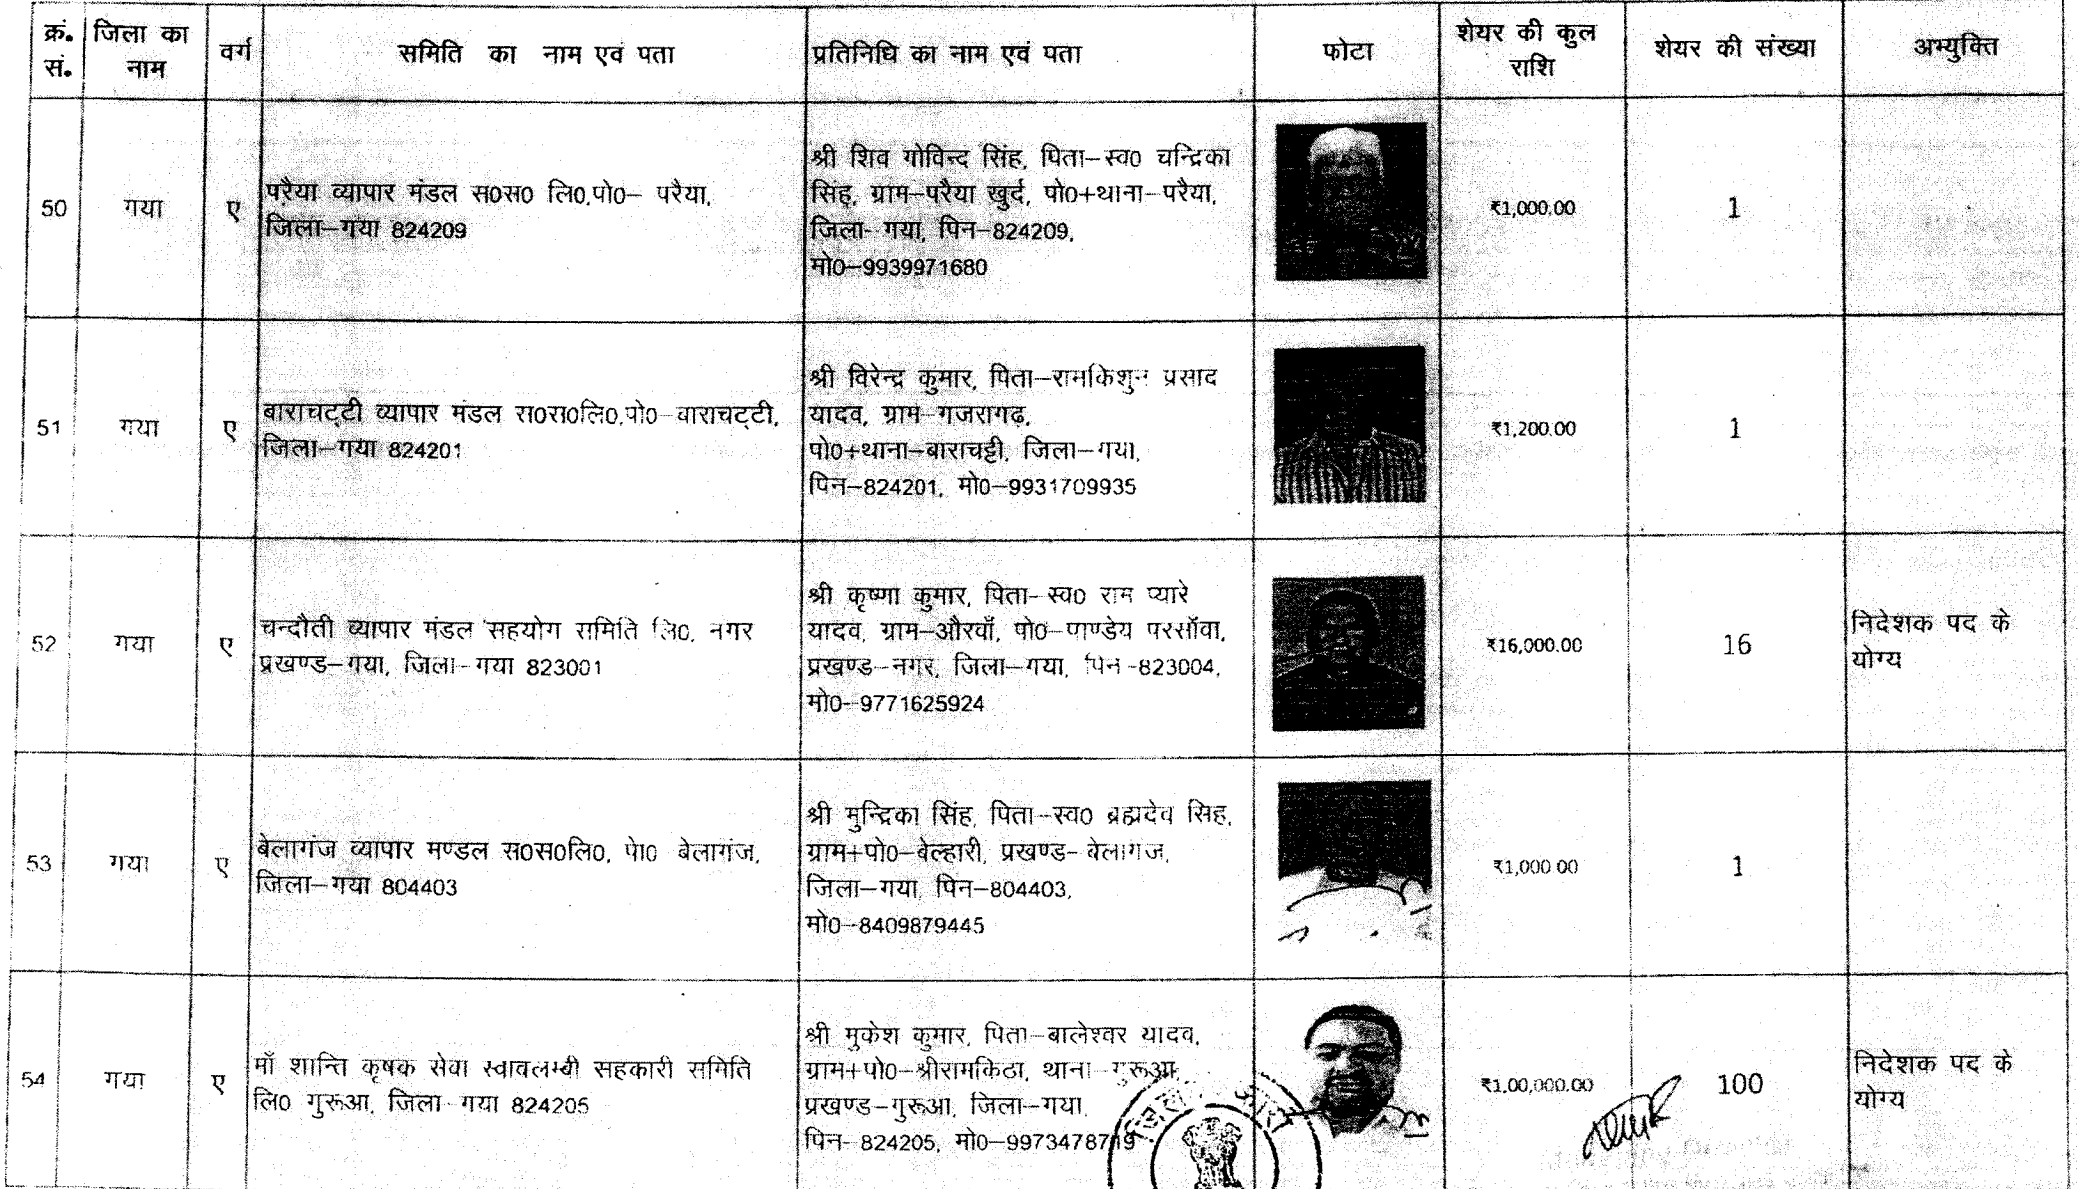 क्रं. सं.
जिला का नाम
वर्ग
समिति का नाम एवं पता
प्रतिनिधि का नाम एवं पता
फोटा
शेयर की कुल राशि
शेयर की संख्या
अभ्युक्ति
50
गया
ए
परैया व्यापार मंडल स0स0 लि0,पो0– परैया,
जिला–गया 824209
श्री शिव गोविन्द सिंह, पिता–स्व0 चन्द्रिका
सिंह, ग्राम–परैया खुर्द, पो0+थाना–परैया,
जिला- गया, पिन–824209,
मो0–9939971680
₹1,000.00
1
51
गया
ए
बाराचट्टी व्यापार मंडल स0स0लि0,पो0–बाराचट्टी,
जिला–गया 824201
श्री विरेन्द्र कुमार, पिता–रामकिशुन प्रसाद
यादव, ग्राम–गजरागढ़,
पो0+थाना–बाराचट्टी, जिला–गया,
पिन–824201, मो0–9931709935
₹1,200.00
1
52
गया
ए
चन्दौती व्यापार मंडल सहयोग समिति लि0, नगर
प्रखण्ड–गया, जिला–गया 823001
श्री कृष्णा कुमार, पिता–स्व0 राम प्यारे
यादव, ग्राम–औरवाँ, पो0–पाण्डेय परसाँवा,
प्रखण्ड–नगर, जिला–गया, पिन–823004,
मो0–9771625924
₹16,000.00
16
निदेशक पद के
योग्य
53
गया
ए
बेलागंज व्यापार मण्डल स0स0लि0, पेा0 बेलागंज,
जिला–गया 804403
श्री मुन्द्रिका सिंह, पिता–स्व0 ब्रह्मदेव सिह,
ग्राम+पो0–बेल्हारी, प्रखण्ड–बेलागज,
जिला–गया, पिन–804403,
मो0–8409879445
₹1,000.00
1
54
गया
ए
माँ शान्ति कृषक सेवा स्वावलम्बी सहकारी समिति
लि0 गुरूआ, जिला–गया 824205
श्री मुकेश कुमार, पिता–बालेश्वर यादव,
ग्राम+पो0–श्रीरामकिठा, थाना–गुरूआ,
प्रखण्ड–गुरूआ, जिला–गया,
पिन- 824205, मो0–9973478719
₹1,00,000.00
100
निदेशक पद के
योग्य